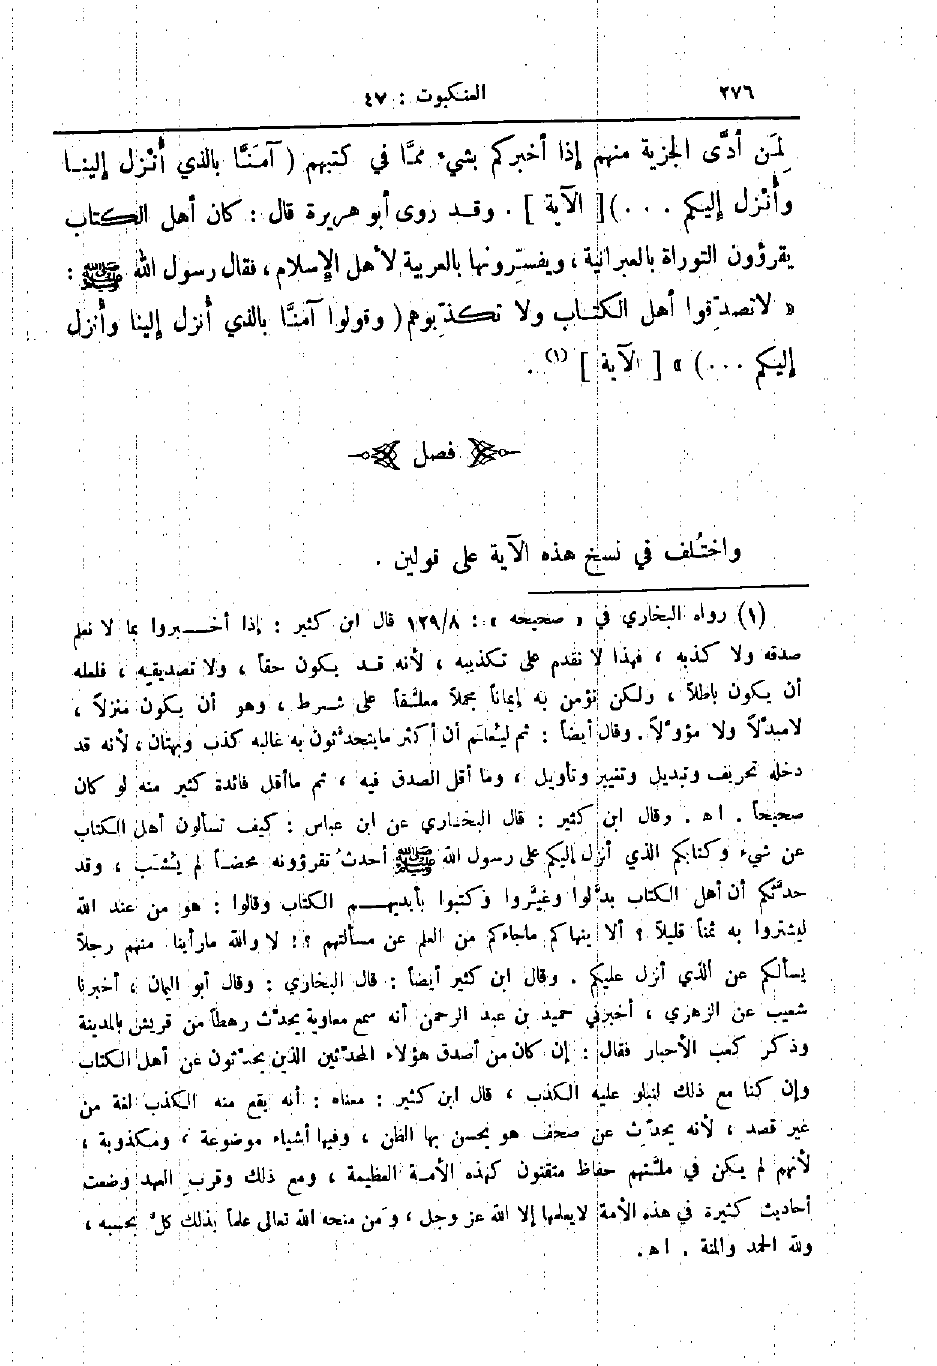 ٢٧٦
العنكبوت : ٤٧
لِمَن أدَّى الجزية منهم إذا أخبركم بشيء ممَّا في كتبهم ( آمَنَّا بالذي أُنْزل إلينــا
وأُنْزل إليكم . . . )[ الآية ] . وقــد روى أبو هريرة قال : كان أهل الكتاب
يقرؤون التوراة بالعبرانية ، ويفسِّرونها بالعربية لأهل الإسلام ، فقال رسول الله ﷺ :
« لاتصدِّقوا أهل الكتــاب ولا تكذِّبوهم ( وقولوا آمَنَّا بالذي أُنزل إلينا وأُنزل
إليكم . . . ) » [ الآية ] (١) .
فصل
واختُلف في نسخ هذه الآية على قولين .
(١) رواه البخاري في « صحيحه » : ١٢٩/٨ قال ابن كثير : إذا أخــبروا بما لا نعلم
صدقه ولا كذبه ، فهذا لا نقدم على تكذيبه ، لأنه قــد يكون حقاً ، ولا تصديقه ، فلعله
أن يكون باطلاً ، ولكن نؤمن به إيماناً مجملاً معلَّقاً على شــرط ، وهو أن يكون منزلاً ،
لامبدَّلاً ولا مؤوَّلاً . وقال أيضاً : ثم ليُعْلَم أن أكثر مايتحدَّثون به غالبه كذب وبهتان ، لأنه قد
دخله تحريف وتبديل وتغيير وتأويل ، وما أقل الصدق فيه ، ثم ماأقل فائدة كثير منه لو كان
صحيحاً . ا ه . وقال ابن كثير : قال البخــاري عن ابن عباس : كيف تسألون أهل الكتاب
عن شيء وكتابكم الذي أنزل إليكم على رسول الله ﷺ أحدثُ تقرؤونه محضــاً لم يُشَب ، وقد
حدَّثكم أن أهل الكتاب بدَّلوا وغيَّروا وكتبوا بأيديهــم الكتاب وقالوا : هو من عند الله
ليشتروا به ثمناً قليلاً ؟ ألا ينهاكم ماجاءكم من العلم عن مسألتهم ؟! لا والله مارأينا منهم رجلاً
يسألكم عن الذي أنزل عليكم . وقال ابن كثير أيضاً : قال البخاري : وقال أبو اليمان ، أخبرنا
شعيب عن الزهري ، أخبرني حميد بن عبد الرحمن أنه سمع معاوية يحدِّث رهطاً من قريش بالمدينة
وذكر كعب الأحبار فقال : إن كان من أصدق هؤلاء المحدِّثين الذين يحدِّثون عن أهل الكتاب
وإن كنا مع ذلك لنبلو عليه الكذب ، قال ابن كثير : معناه : أنه يقع منه الكذب لغة من
غير قصد ، لأنه يحدِّث عن صحف هو يحسن بها الظن ، وفيها أشياء موضوعة ، ومكذوبة ،
لأنهم لم يكن في ملَّتهم حفاظ متقنون كهذه الأمــة العظيمة ، ومع ذلك وقرب العهد وضعت
أحاديث كثيرة في هذه الأمة لايعلمها إلا الله عز وجل ، ومَن منحه الله تعالى علماً بذلك كلٌّ بحسبه ،
ولله الحمد والمنة . ا ه .